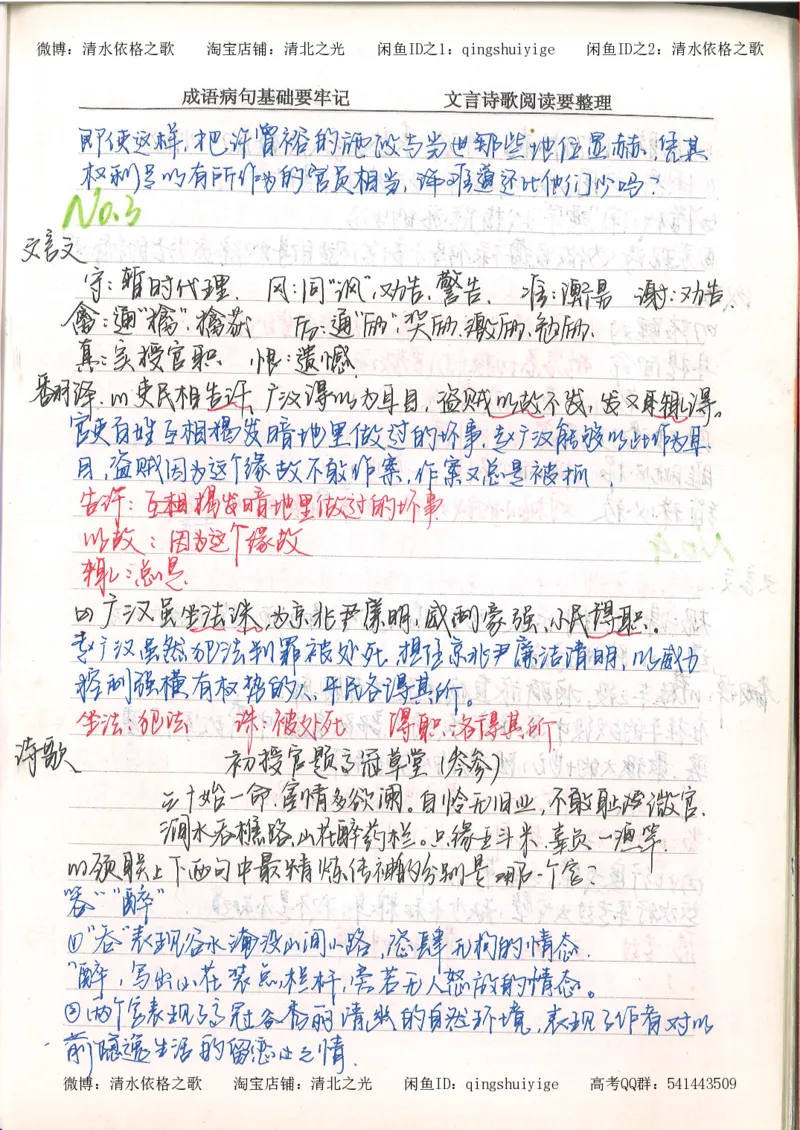 微博：清水依格之歌 淘宝店铺：清北之光 闲鱼ID之1：qingshuiyige 闲鱼ID之2：清水依格之歌
成语病句基础要牢记 文言诗歌阅读要整理
即使这样，把许曾裕的施设与当世那些地位显赫，凭其
权利足以有所作为的官员相当，许难道还比他们少吗？
No.3
文言文
守：暂时代理． 风：同“讽”，劝告、警告． 谢：劝告．
禽：通“擒”，擒获 厉：通“励”，奖励、激励、勉励．
真：实授官职 恨：遗憾．
翻译． (1)吏民相告讦，广汉得以为耳目，盗贼以故不发，发又辄得。
官吏百姓互相揭发暗地里做过的坏事，赵广汉能够以此作为耳
目，盗贼因为这个缘故不敢作案，作案又总是被抓．
告讦：互相揭发暗地里做过的坏事
以故：因为这个缘故
辄：总是．
(2)广汉虽坐法诛，为京兆尹廉明，威制豪强，小民得职。
赵广汉虽然犯法判罪被处死，担任京兆尹廉洁清明，以威力
控制强横、有权势的人，平民各得其所。
坐法：犯法 诛：被处死 得职：各得其所
诗歌
初授官题高冠草堂（岑参）
三十始一命，宦情多欲阑。自怜无旧业，不敢耻微官．
涧水吞樵路，山花醉药栏。只缘五斗米，辜负一渔竿
(1)颈联上下两句中最精炼传神的分别是哪一个字？
答：“吞”“醉”
①“吞”表现谷水淹没山间小路，恣肆无拘的情态．
“醉”，写出山花装点栏杆，旁若无人怒放的情态。
②两个字表现了高冠谷秀丽清幽的自然环境，表现了作者对以
前隐逸生活的留恋之情．
微博：清水依格之歌 淘宝店铺：清北之光 闲鱼ID：qingshuiyige 高考QQ群：541443509